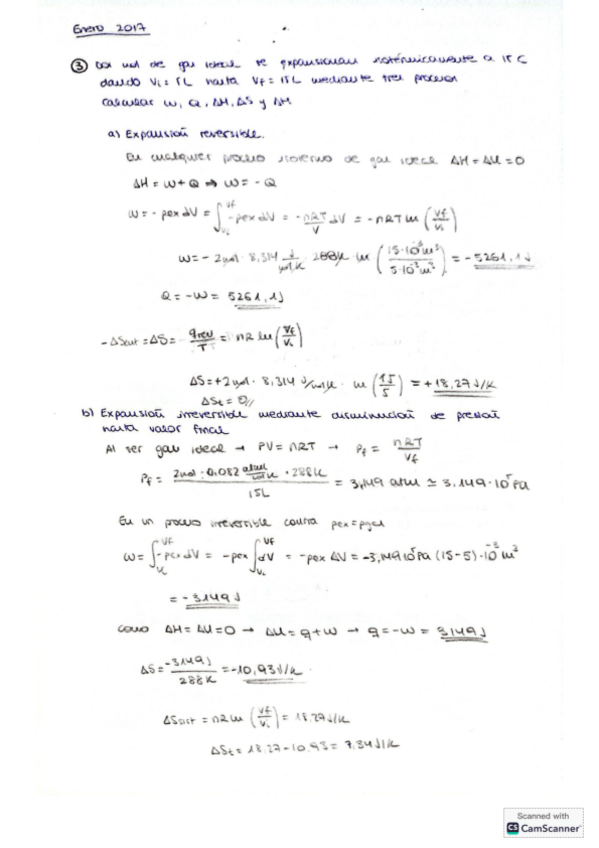 Enero 2017
③ Dos mol de gas ideal se expansionan isotérmicamente a 15ºC
dando Vi = 5L hasta Vf = 15L mediante tres procesos
calcular w, Q, ΔH, ΔS y ΔH
a) Expansión reversible.
En cualquier proceso isotermo de gas ideal ΔH = ΔU = 0
ΔH = W + Q ⇒ W = - Q
W = - pex dV = ∫Vi Vf -pex dV = - nRT/V dV = - nRT ln (Vf/Vi)
W = - 2mol · 8,314 J/mol·K · 288K · ln (15·10⁻³m³/5·10⁻³m³) = - 5261,1J
Q = -W = 5261,1J
- ΔSent = ΔS = - qrev/T = nR ln (Vf/Vi)
ΔS = +2mol · 8,314 J/mol·K · ln (15/5) = + 18,27 J/K
ΔSt = 0//
b) Expansión irreversible mediante disminución de presión
hasta valor final
Al ser gas ideal → PV = nRT → Pf = nRT/Vf
Pf = 2mol · 0,082 atmL/molK · 288K / 15L = 3,149 atm ≃ 3,149·10⁵Pa
En un proceso irreversible contra pex = pgas
W = ∫Vi Vf -pex dV = -pex ∫Vi Vf dV = - pex ΔV = -3,149·10⁵Pa (15-5)·10⁻³m³
= - 3149J
como ΔH = ΔU = 0 → ΔU = q + w → q = -w = 3149J
ΔS = -3149J/288K = -10,93J/K
ΔSsist = nR ln (Vf/Vi) = 18.27J/K
ΔSt = 18.27 - 10.93 = 7.34J/K
Scanned with
CS CamScanner